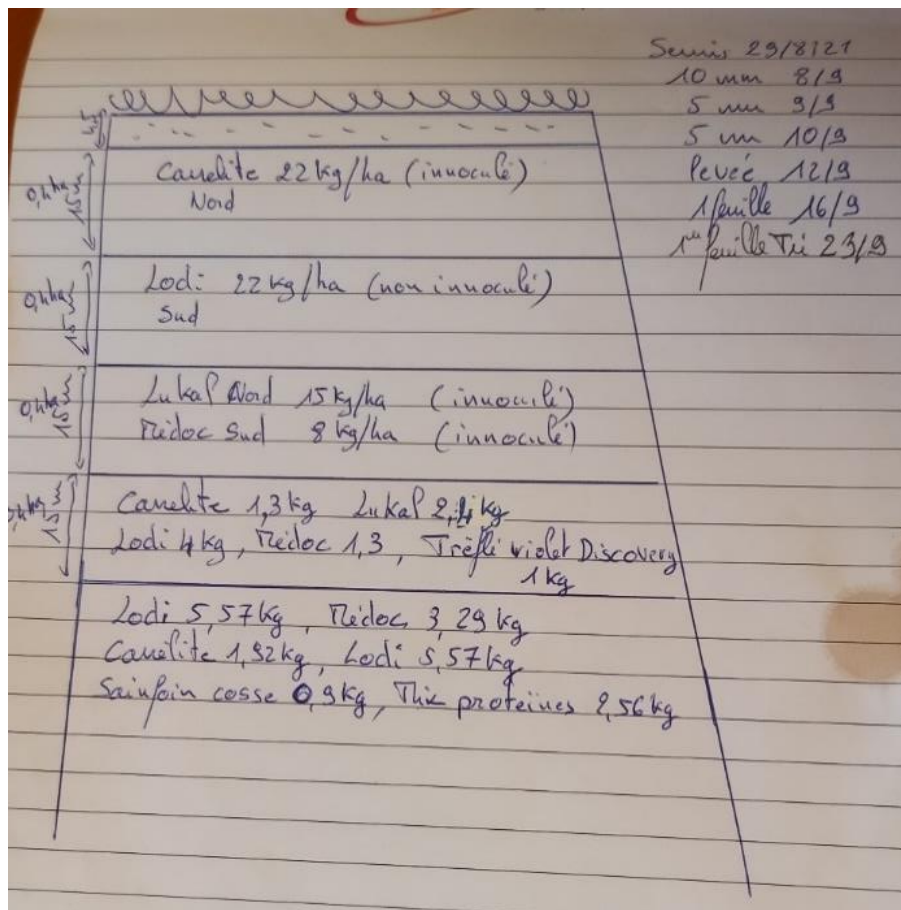 Semis 29/8/21
10 mm 8/9
5 mm 9/9
5 mm 10/9
Levée 12/9
1 feuille 16/9
1ère feuille Tri 23/9
4,5
0,4ha
15m
Canelite 22 kg/ha (innoculé)
Nord
0,4ha
15m
Lodi 22 kg/ha (non innoculé)
Sud
0,4ha
15m
Lukal Nord 15 kg/ha (innoculé)
Médoc Sud 8 kg/ha (innoculé)
0,4ha
15m
Canelite 1,3 kg Lukal kg
Lodi 4 kg, Médoc 1,3, Trèfle violet Discovery
1 kg
Lodi 5,57 kg, Médoc 3,29 kg
Canélite 1,92 kg, Lodi 5,57 kg
Sainfoin cosse 0,9 kg, Mix proteïnes 2,56 kg